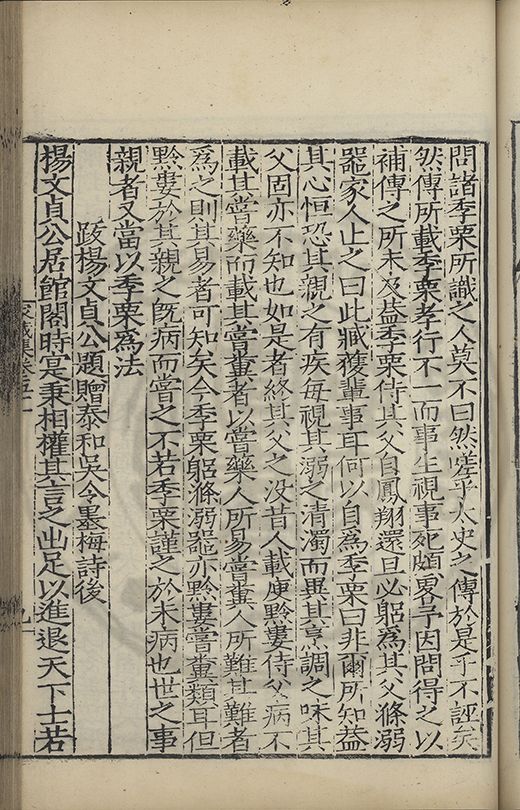 問諸季栗所識之人莫不曰然嗟乎太史之傳於是乎不誣矣
然傳所載季栗孝行不一而事生視事死頗畧予因問得之以
補傳之所未及葢季栗侍其父自鳳翔還旦必躬為其父滌溺
噐家人止之曰此臧獲輩事耳何以自為季栗曰非爾所知葢
其心恒恐其親之有疾每視其溺之清濁而異其烹調之味其
父固亦不知也如是者終其父之没昔人載庾黔婁侍父病不
載其嘗藥而載其嘗糞者以嘗藥人所易嘗糞人所難其難者
為之則其易者可知矣今季栗躬滌溺噐亦黔婁嘗糞類耳但
黔婁於其親之旣病而嘗之不若季栗謹之於未病也世之事
親者又當以季栗為法
跋楊文貞公題贈泰和吳令墨梅詩後
楊文貞公居館閣時寔秉相權其言之出足以進退天下士若